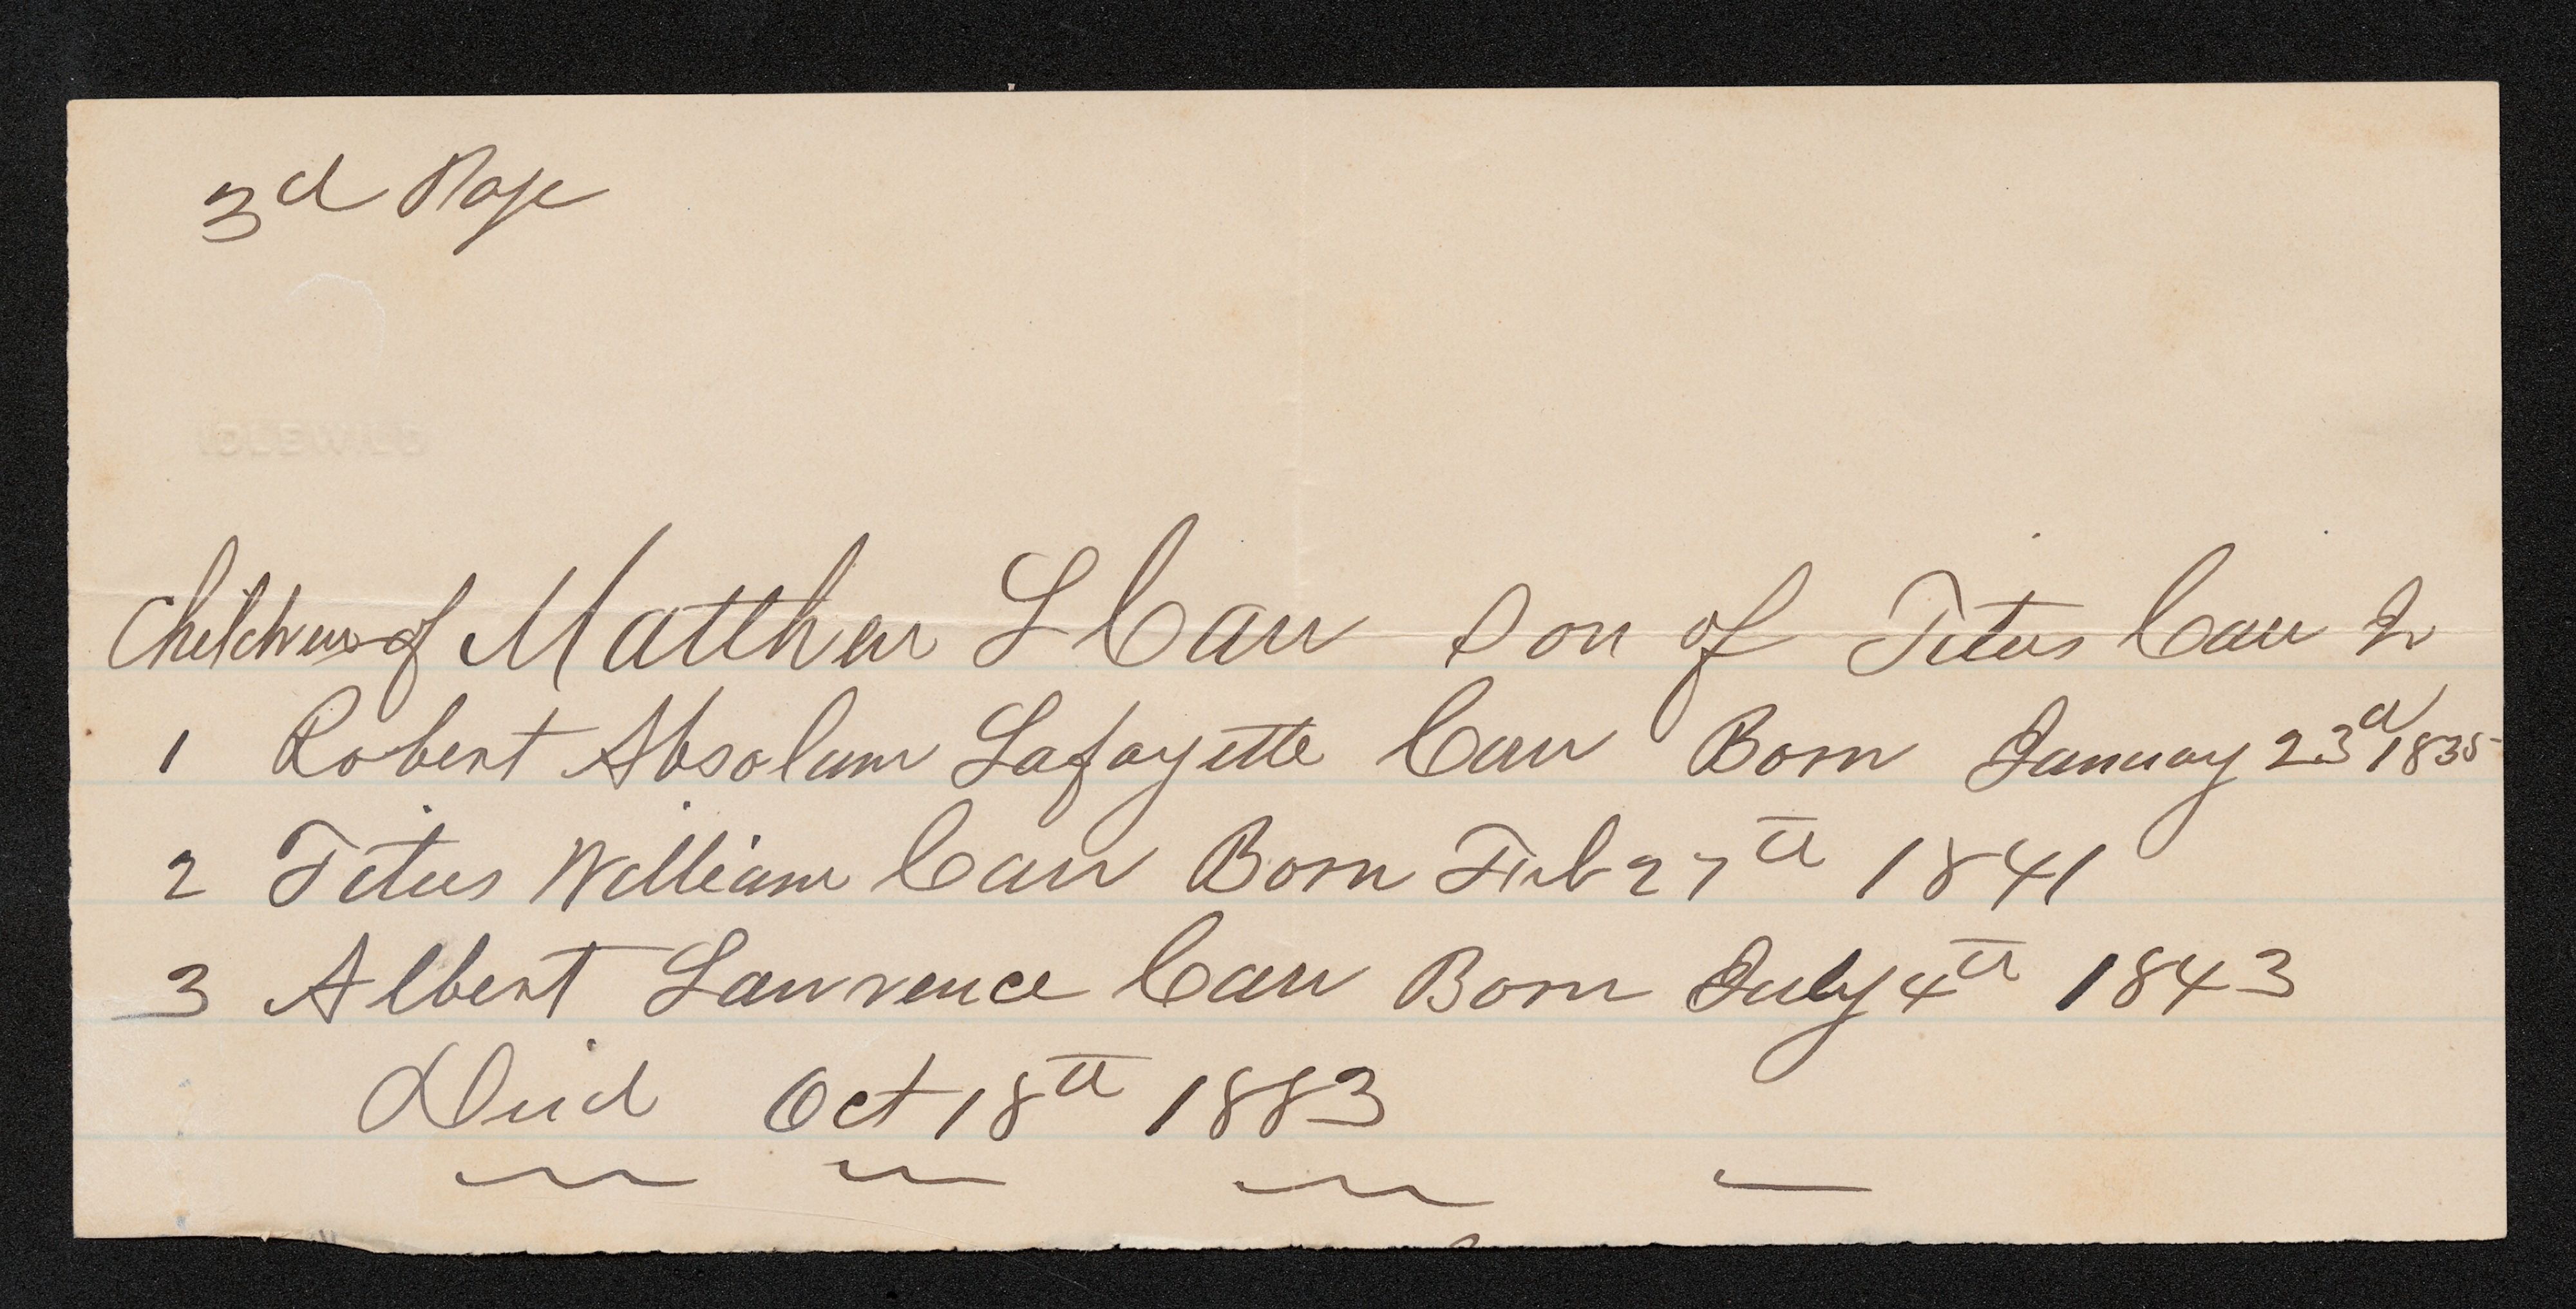 3d Page
IDLEWILD
Children of Matthew L Carr Son of Titus Carr 2
1 Robert Absolum Lafayette Carr Born January 23d 1835
2 Titus William Carr Born Feb 27th 1841
3 Albert Lawrence Carr Born July 4th 1843
Died Oct 18th 1883